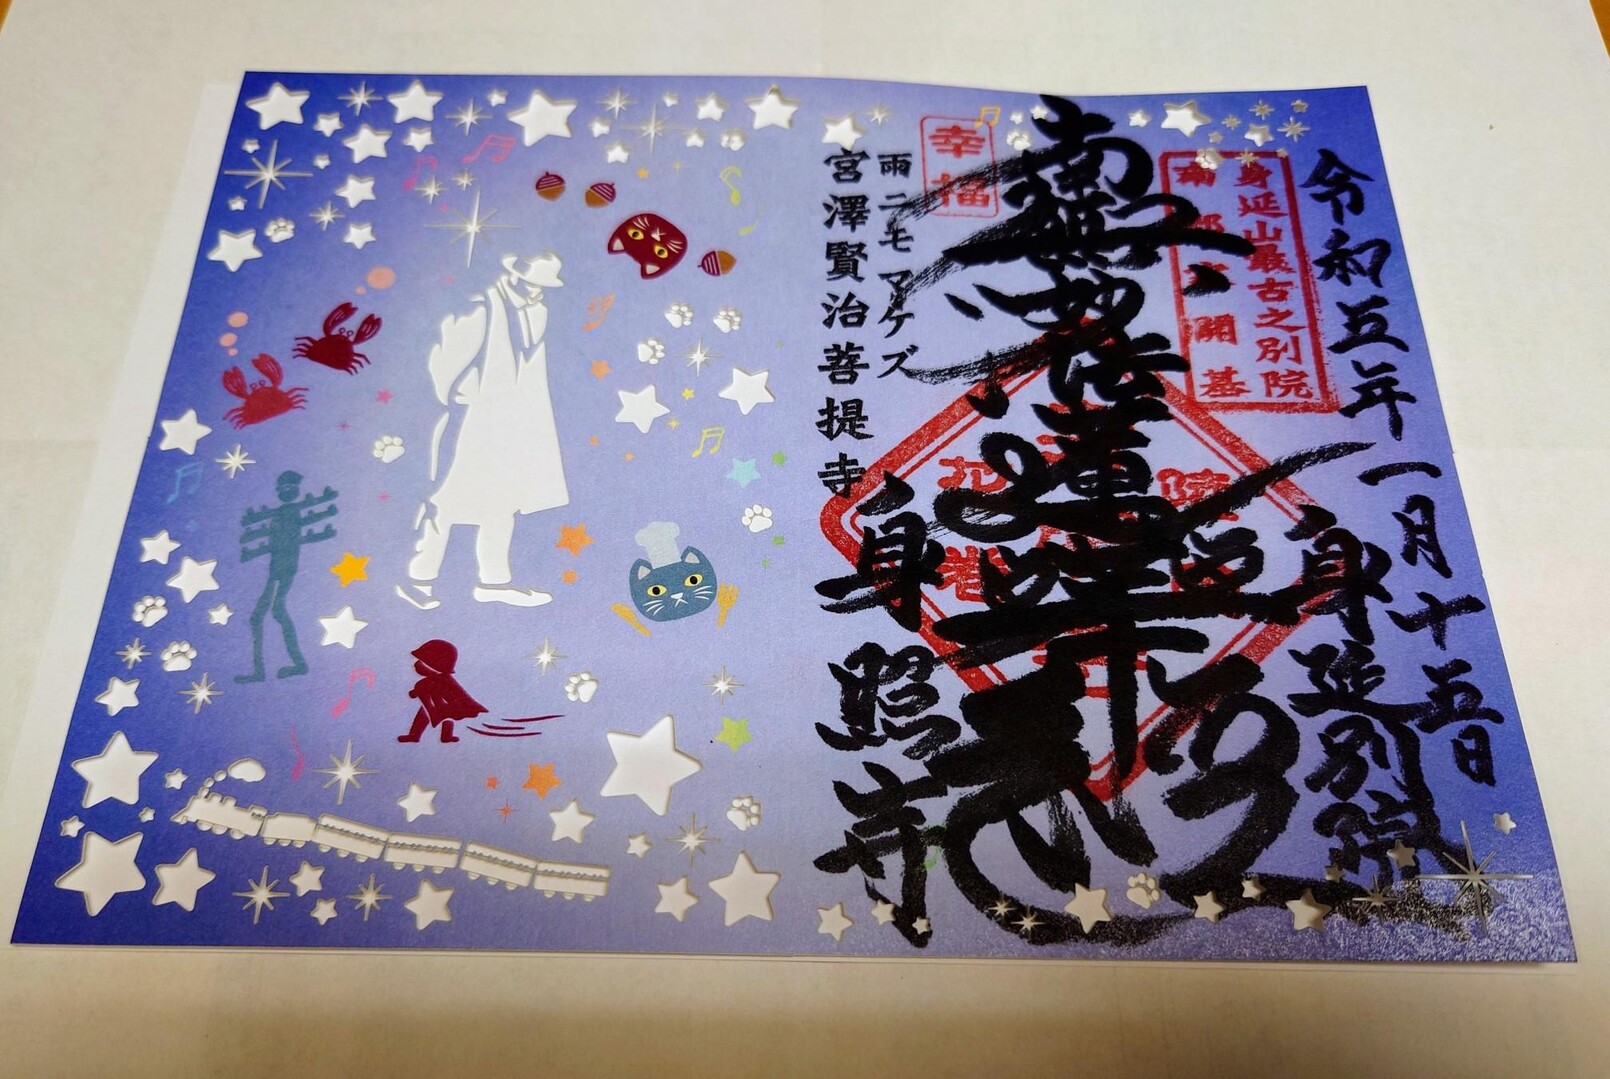 令和五年一月十五日
身延別院
身延山最古之別院
南部家開基
南無妙法蓮華経
幸福
雨ニモマケズ
宮澤賢治菩提寺
身照寺